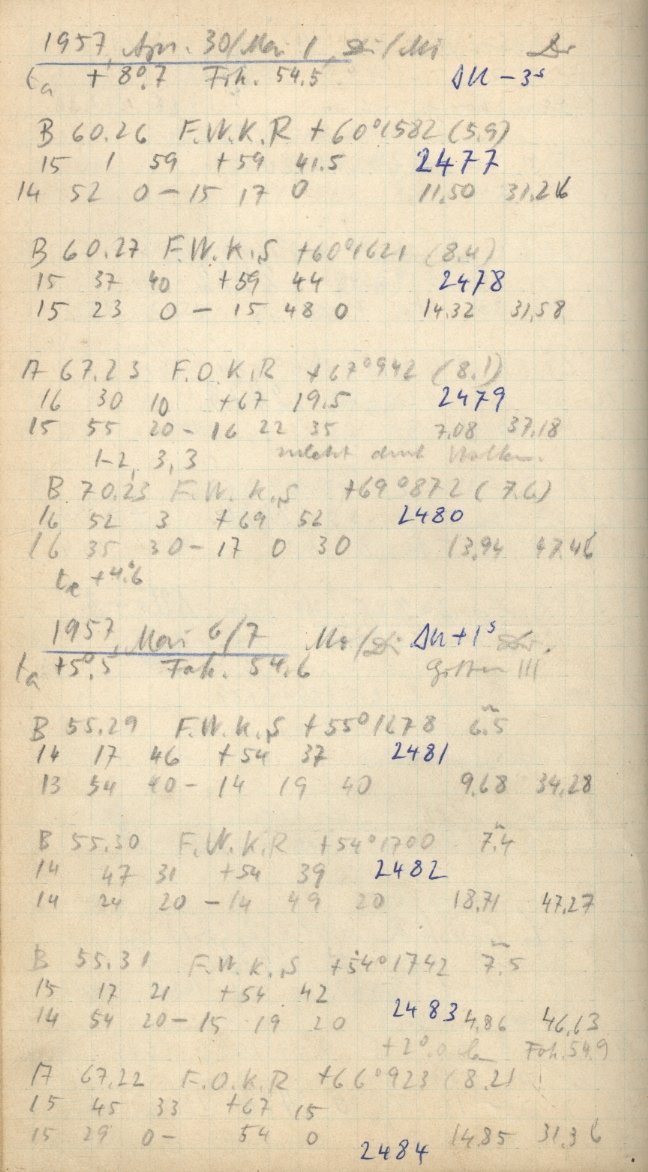 1957, Apr. 30/Mai 1, Di/Mi Dr
ta + 8°.7 Fok. 54.5 ΔU - 3s
B 60.26 F.W.K.R +60°1582 (5.9)
15 1 59 +59 41.5 2477
14 52 0 - 15 17 0 11,50 31,26
B 60.27 F.W.K.S +60°1621 (8.4)
15 37 40 +59 44 2478
15 23 0 - 15 48 0 14.32 31,58
A 67.23 F.O.K.R +67°942 (8.1)
16 30 10 +67 19.5 2479
15 55 20 - 16 22 35 7.08 37,18
1-2, 3, 3 zuletzt durch Wolken.
B 70.23 F.W.K.S +69°872 (7.6)
16 52 3 +69 52 2480
16 35 30 - 17 0 30 13,94 47.46
te +4°.6
1957, Mai 6/7 Mo/Di ΔU + 1s Dr.
ta +5°.5 Fok. 54.6 III
B 55.29 F.W.K.S +55°1678 6.5
14 17 46 +54 37 2481
13 54 40 - 14 19 40 9,68 34.28
B 55.30 F.W.K.R +54°1700 7.4
14 47 31 +54 39 2482
14 24 20 - 14 49 20 18.71 47,27
B 55.31 F.W.K.S +54°1742 7.5
15 17 21 +54 42
14 54 20 - 15 19 20 2483 4,86 46,13
+2°.0 Fok. 54.9
A 67.22 F.O.K.R +66°923 (8.2)
15 45 33 +67 15
15 29 0 - 54 0 2484 14.85 31.36